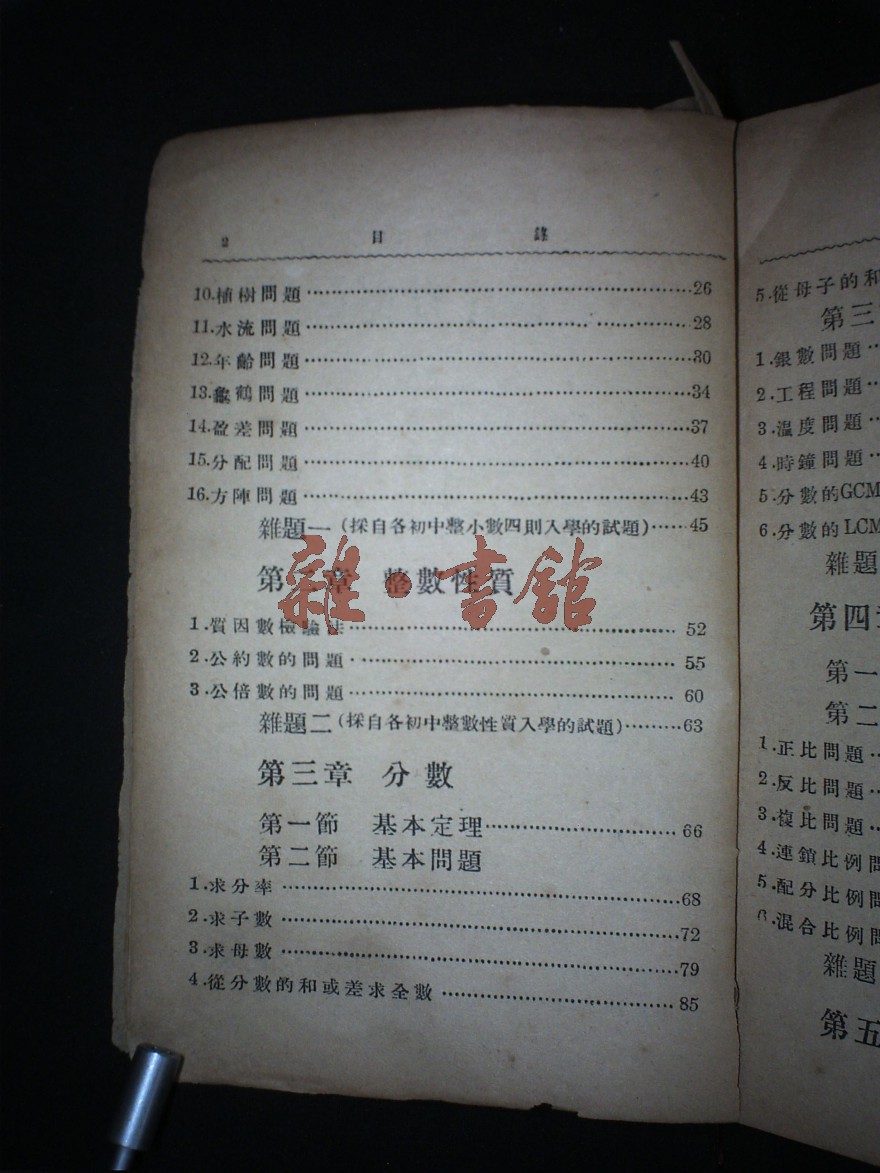 2 目錄
10.植樹問題……26
11.水流問題……28
12.年齡問題……30
13.龜鶴問題……34
14.盈差問題……37
15.分配問題……40
16.方陣問題……43
雜題一(採自各初中整小數四則入學的試題)……45
第二章 整數性質
1.質因數檢驗法……52
2.公約數的問題……55
3.公倍數的問題……60
雜題二(採自各初中整數性質入學的試題)……63
第三章 分數
第一節 基本定理……66
第二節 基本問題
1.求分率……68
2.求子數……72
3.求母數……79
4.從分數的和或差求全數……85
雜·書館
5.從母子的和
第三
1.銀數問題
2.工程問題
3.溫度問題
4.時鐘問題
5.分數的GCM
6.分數的LCM
雜題
第四
第一
第二
1.正比問題
2.反比問題
3.複比問題
4.連鎖比例問
5.配分比例問
6.混合比例問
雜題
第五